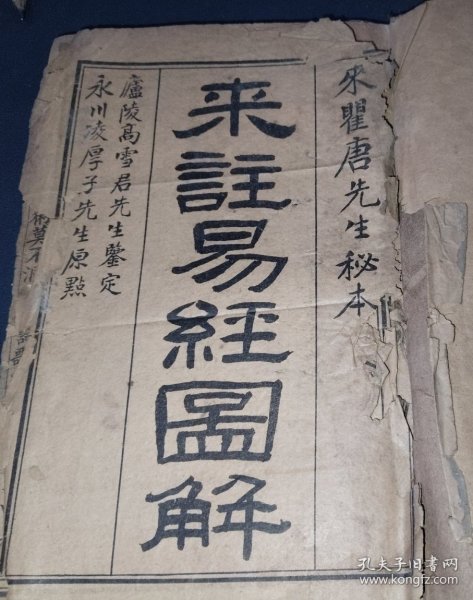 來瞿唐先生秘本
来註易經圖解
廬陵高雪君先生鑒定
永川凌厚子先生原點
孔夫子旧书网
www.kongfz.com